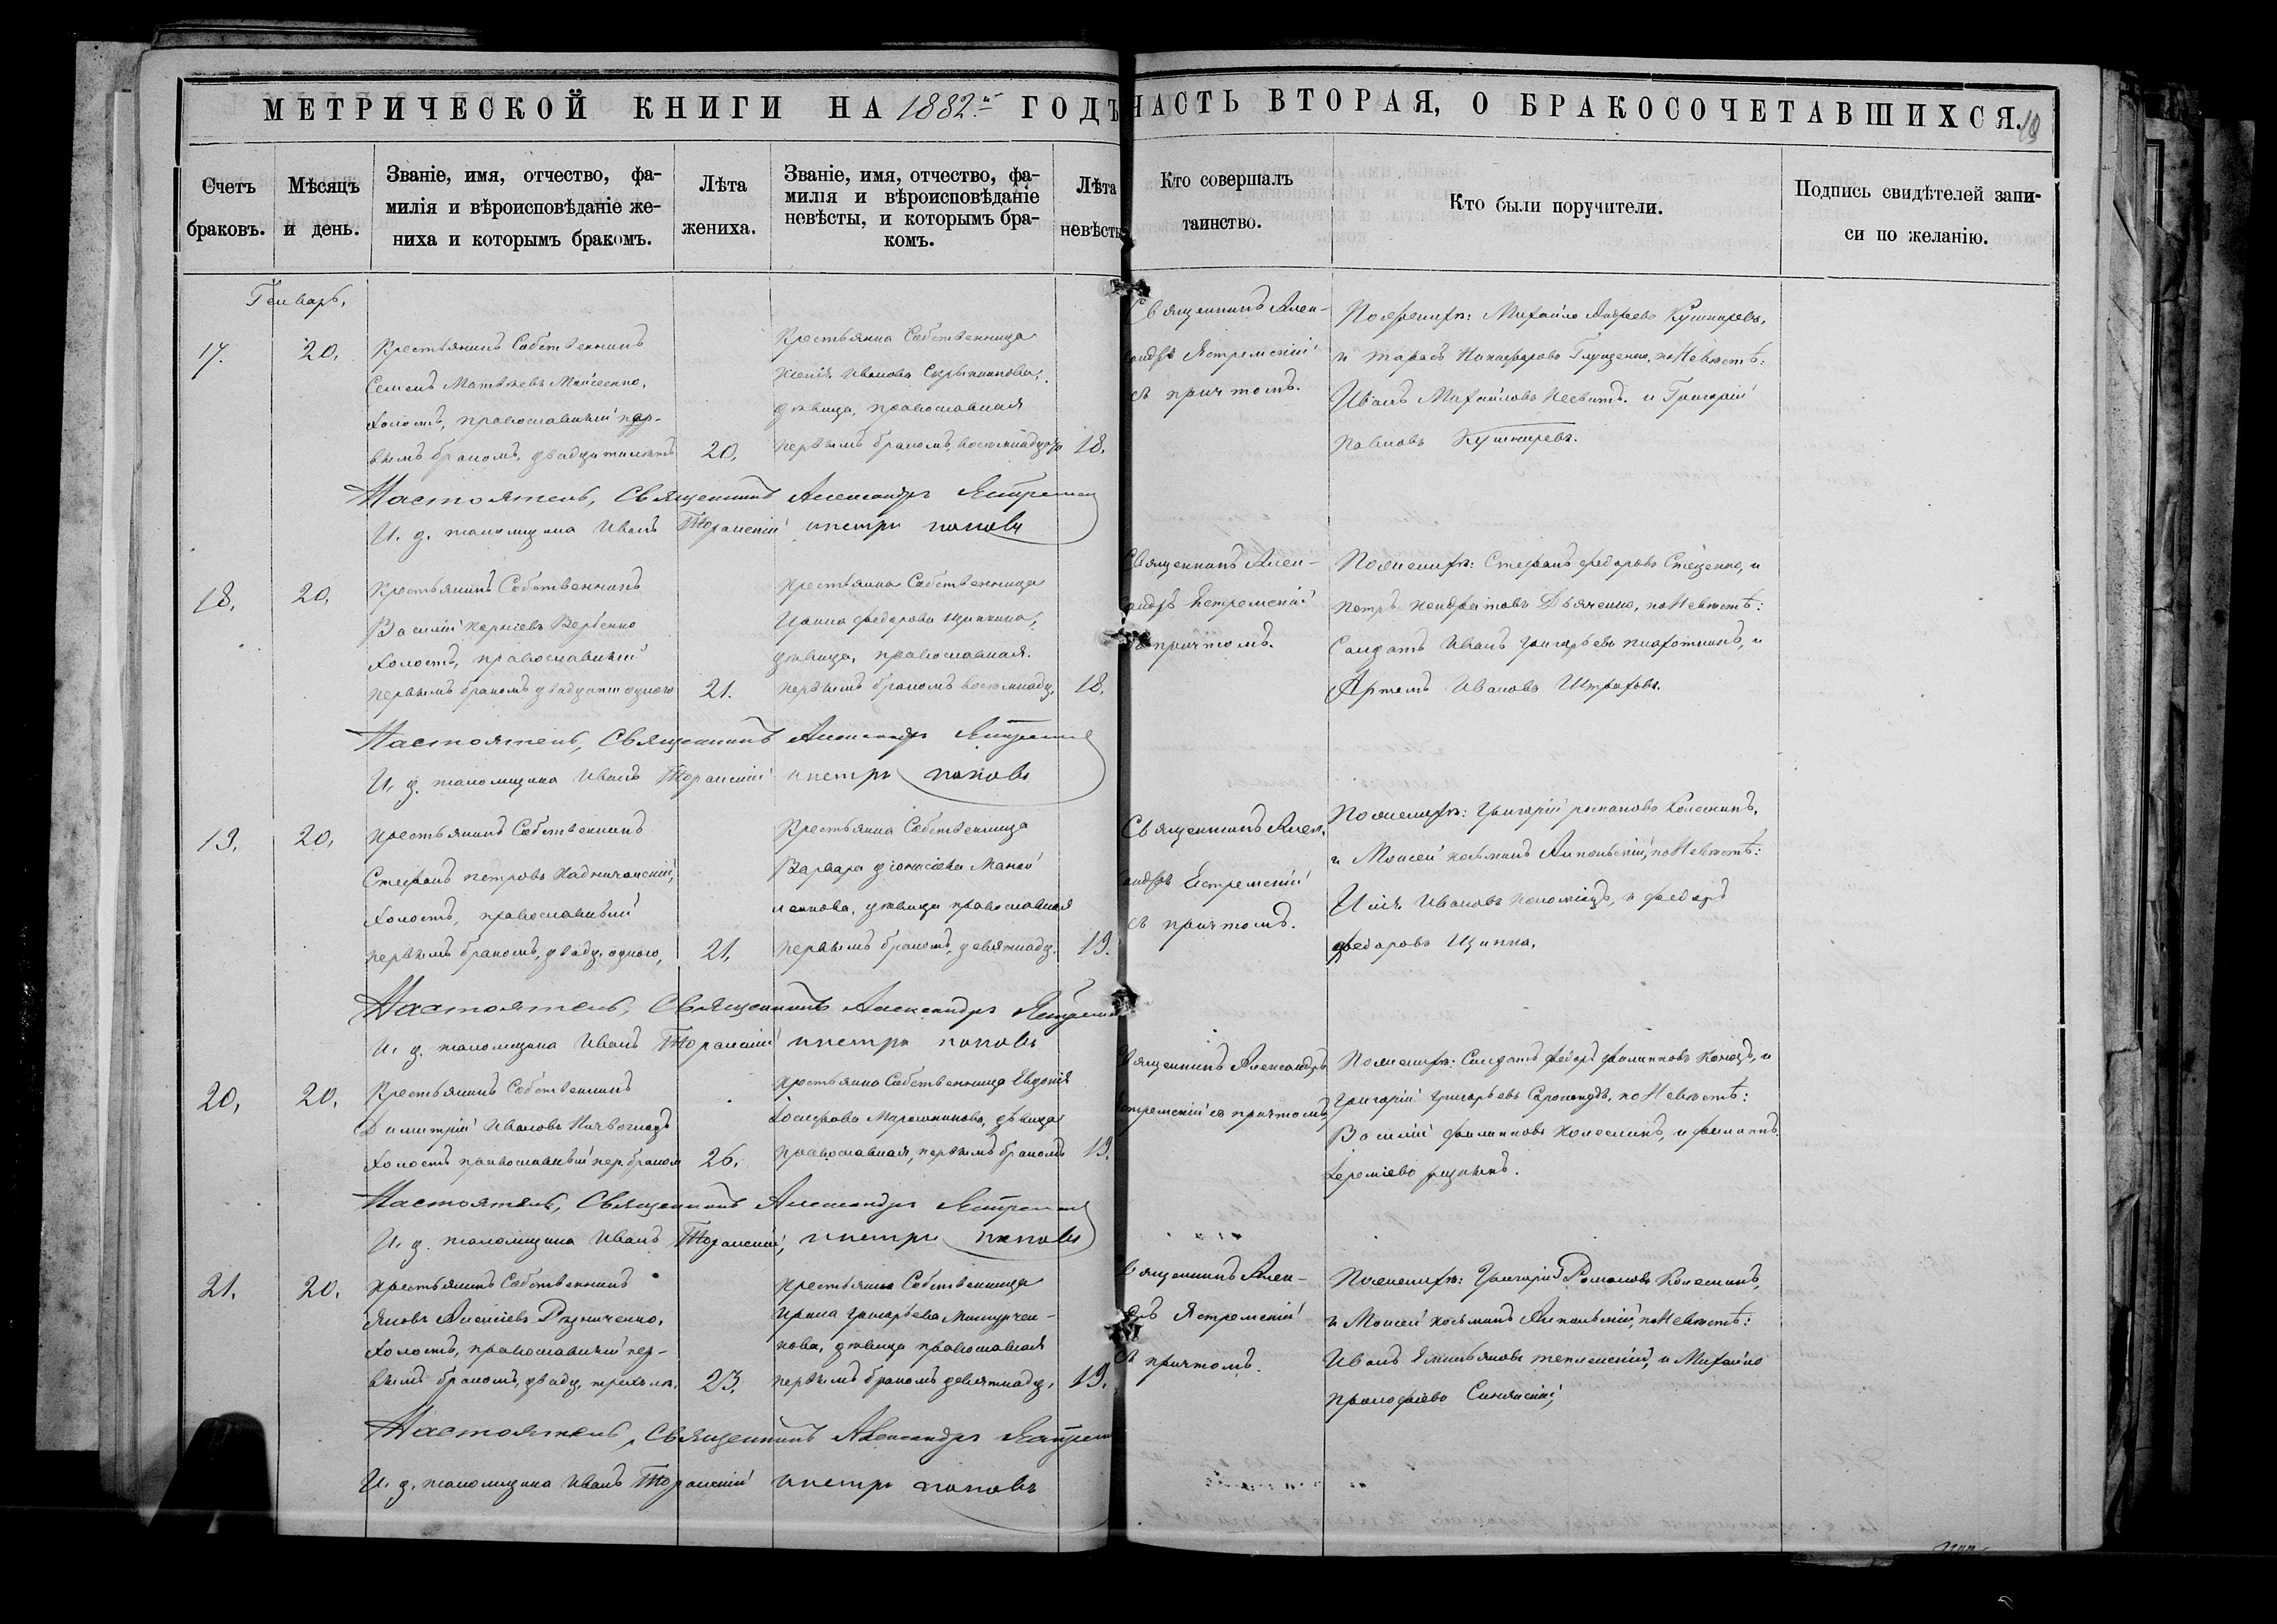 МЕТРИЧЕСКОЙ КНИГИ НА 1882й ГОДЪ
ЧАСТЬ ВТОРАЯ, О БРАКОСОЧЕТАВШИХСЯ.
Счетъ браковъ.
Мѣсяцъ и день.
Званіе, имя, отчество, фа-
милія и вѣроисповѣданіе же-
ниха и которымъ бракомъ.
Лѣта
жениха.
Званіе, имя, отчество, фа-
милія и вѣроисповѣданіе
невѣсты, и которымъ бра-
комъ.
Лѣта
невѣсты
Кто совершалъ
таинство.
Кто были поручители.
Подпись свидѣтелей запи-
си по желанію.
Генварь,
17.
20,
Крестьянинъ Собственникъ
Семенъ Матвѣевъ Моисеенко,
холостъ, православный пер-
вымъ бракомъ, двадцати лѣтъ
20,
Крестьянка Собственница
Ксенія Иванова
дѣвица, православная
первымъ бракомъ,
18.
Священникъ Алек-
сандръ Ястремскій
съ причтомъ.
По женихѣ: Михайло Андреевъ Кушнаревъ,
и Тарасъ Никифоровъ Глущенко, по Невѣстѣ:
Иванъ Михайловъ и Григорій
Павловъ Кушнаревъ.
Настоятель, Священникъ Александръ
И. д. псаломщика Иванъ и Петръ Поповъ
18,
20,
Крестьянинъ Собственникъ
Василій Карпіевъ Вербенко
холостъ, православный
первымъ бракомъ двадцати одного
21.
Крестьянка Собственница
Ирина Федорова
дѣвица, православная.
первымъ бракомъ восемнадц.
18.
Священникъ Алек-
сандръ Ястремскій
съ причтомъ.
По женихѣ: Стефанъ Федоровъ Стеценко, и
Петръ Дьяченко, по Невѣстѣ:
Солдатъ Иванъ Григорьевъ Плотникъ, и
Артемъ Ивановъ Штраховъ.
Настоятель, Священникъ Александръ
И. д. псаломщика Иванъ и Петръ Поповъ
19.
20,
Крестьянинъ Собственникъ
Стефанъ Петровъ
холостъ, православный
первымъ бракомъ, двадц. одного,
21,
Крестьянка Собственница
Варвара Діонисіева
дѣвица православная
первымъ бракомъ, девятнадц.
19.
Священникъ Алек-
сандръ Ястремскій
съ причтомъ.
По женихѣ: Григорій Романовъ Колесникъ,
и Моисей Косьминъ по Невѣстѣ:
Илія Ивановъ и Федоръ
Федоровъ
Настоятель, Священникъ Александръ
И. д. псаломщика Иванъ и Петръ Поповъ
20,
20,
Крестьянинъ Собственникъ
Димитрій Ивановъ
холостъ православный пер. браком
26.
Крестьянка Собственница Евдокія
Мирошникова, дѣвица
православная, первымъ бракомъ
19.
Священникъ Александръ
Ястремскій съ причтомъ
По женихѣ: Солдатъ Федоръ Филипповъ и
Григорій Григорьевъ по Невѣстѣ:
Василій Филипповъ Колесникъ, и Филиппъ
Настоятель, Священникъ Александръ
И. д. псаломщика Иванъ и Петръ Поповъ
21.
20.
Крестьянинъ Собственникъ
Яковъ Алексіевъ Рѣзниченко,
холостъ, православный пер-
вымъ бракомъ, двадц. трехъ лѣт.
23.
Крестьянка Собственница
Ирина Григорьева
дѣвица православная
первымъ бракомъ девятнадц.
19.
Священникъ Алек-
Ястремскій
съ причтомъ.
По женихѣ: Григорій Романовъ Колесникъ,
и Моисей Косьминъ по Невѣстѣ:
Иванъ Емельяновъ и Михайло
Прокофіевъ Синявскій,
Настоятель, Священникъ Александръ
И. д. псаломщика Иванъ и Петръ Поповъ